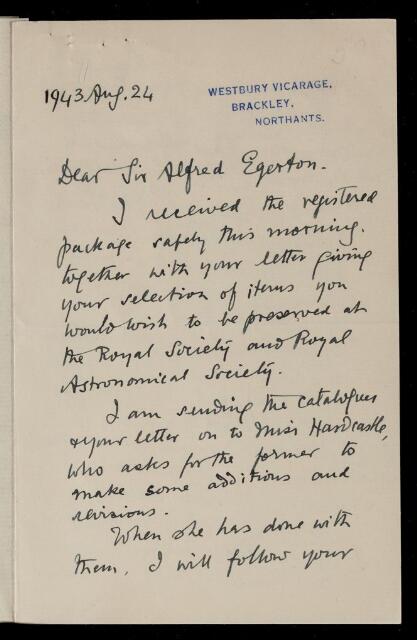 1943 Aug. 24
WESTBURY VICARAGE,
BRACKLEY,
NORTHANTS.
Dear Sir Alfred Egerton.
I received the registered
package safely this morning.
together with your letter giving
your selection of items you
would wish to be preserved at
the Royal Society and Royal
Astronomical Society.
I am sending the catalogues
& your letter on to Miss Hardcastle,
who asks for the former to
make some additions and
revisions.
When she has done with
them, I will follow your